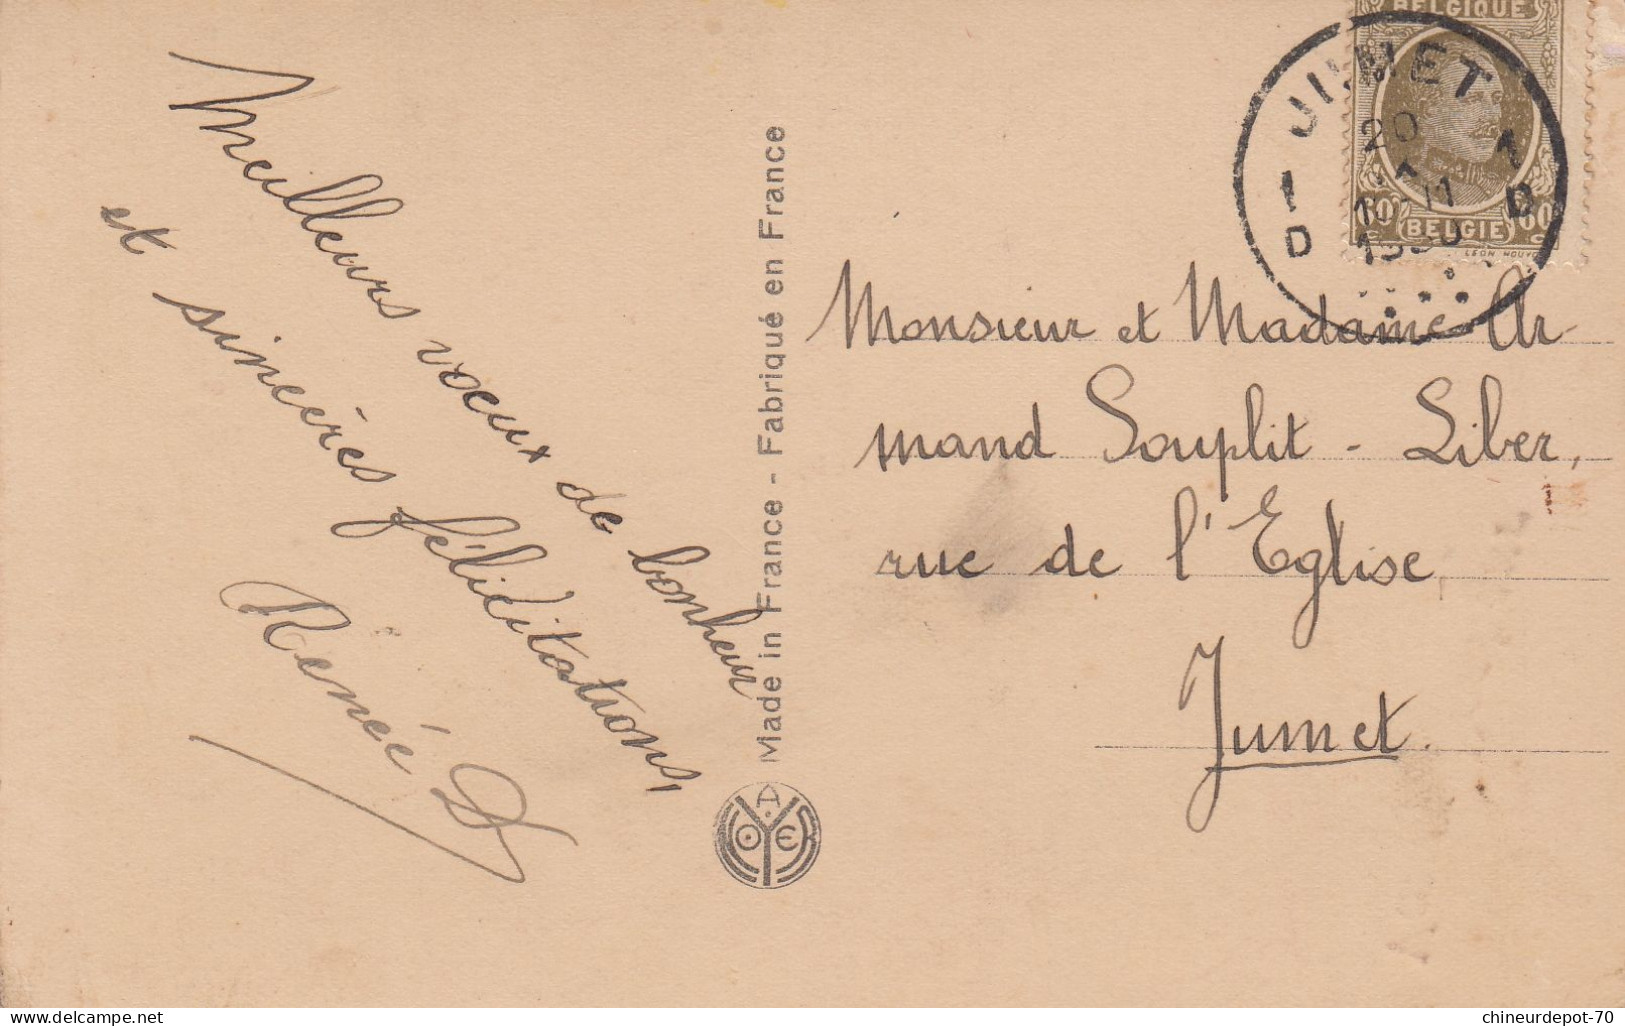 Meilleurs vœux de bonheur
et sincères félicitations
Renée D
Made in France - Fabriqué en France
A
YOER
BELGIQUE
60 BELGIE 60
JUMET
20
10-11
1930
1 D
1 D
Monsieur et Madame Ar-
mand Souplit - Liber,
rue de l'Eglise
Jumet.
delcampe.net
chineurdepot-70